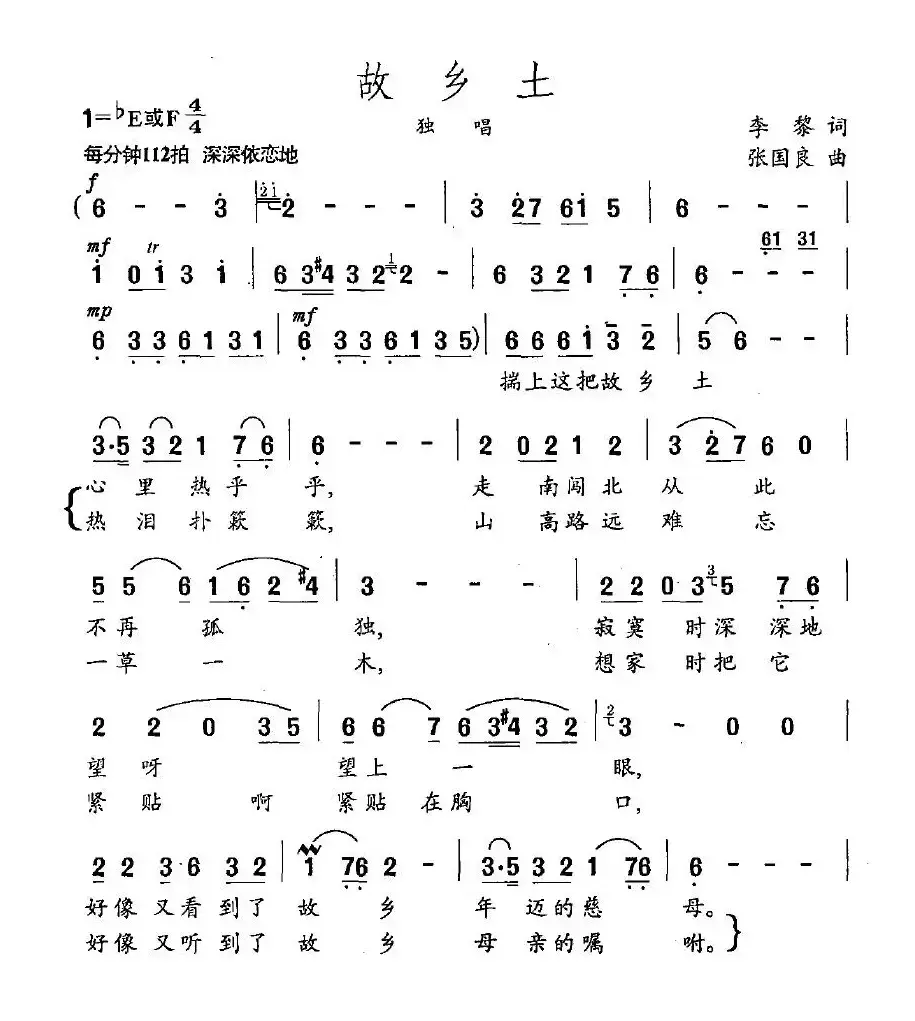 故乡土
1=♭E或F 4/4
独唱
李黎 词
每分钟112拍 深深依恋地
张国良 曲
f
( 6 - - 3 | 2 - - - | 3 27 61 5 | 6 - - - |
61 31
mf tr
1 0 1 3 1 | 6 3#4 3 2 2 - | 6 3 2 1 7 6 | 6 - - - |
mp mf
6 3 3 6 1 3 1 | 6 3 3 6 1 3 5 ) | 6 6 6 1 3 2 | 5 6 - - |
揣上这把故乡土
3·5 3 2 1 7 6 | 6 - - - | 2 0 2 1 2 | 3 2 7 6 0 |
心里热乎乎, 走南闯北从此
热泪扑簌簌, 山高路远难忘
5 5 6 1 6 2 #4 | 3 - - - | 2 2 0 3 3 5 7 6 |
不再孤独, 寂寞时深深地
一草一木, 想家时把它
2 2 0 3 5 | 6 6 7 6 3#4 3 2 | 2 3 - 0 0 |
望呀 望上一眼,
紧贴啊紧贴在胸口,
2 2 3·6 3 2 | 1 76 2 - | 3·5 3 2 1 76 | 6 - - - |
好像又看到了故乡年迈的慈母。
好像又听到了故乡母亲的嘱咐。